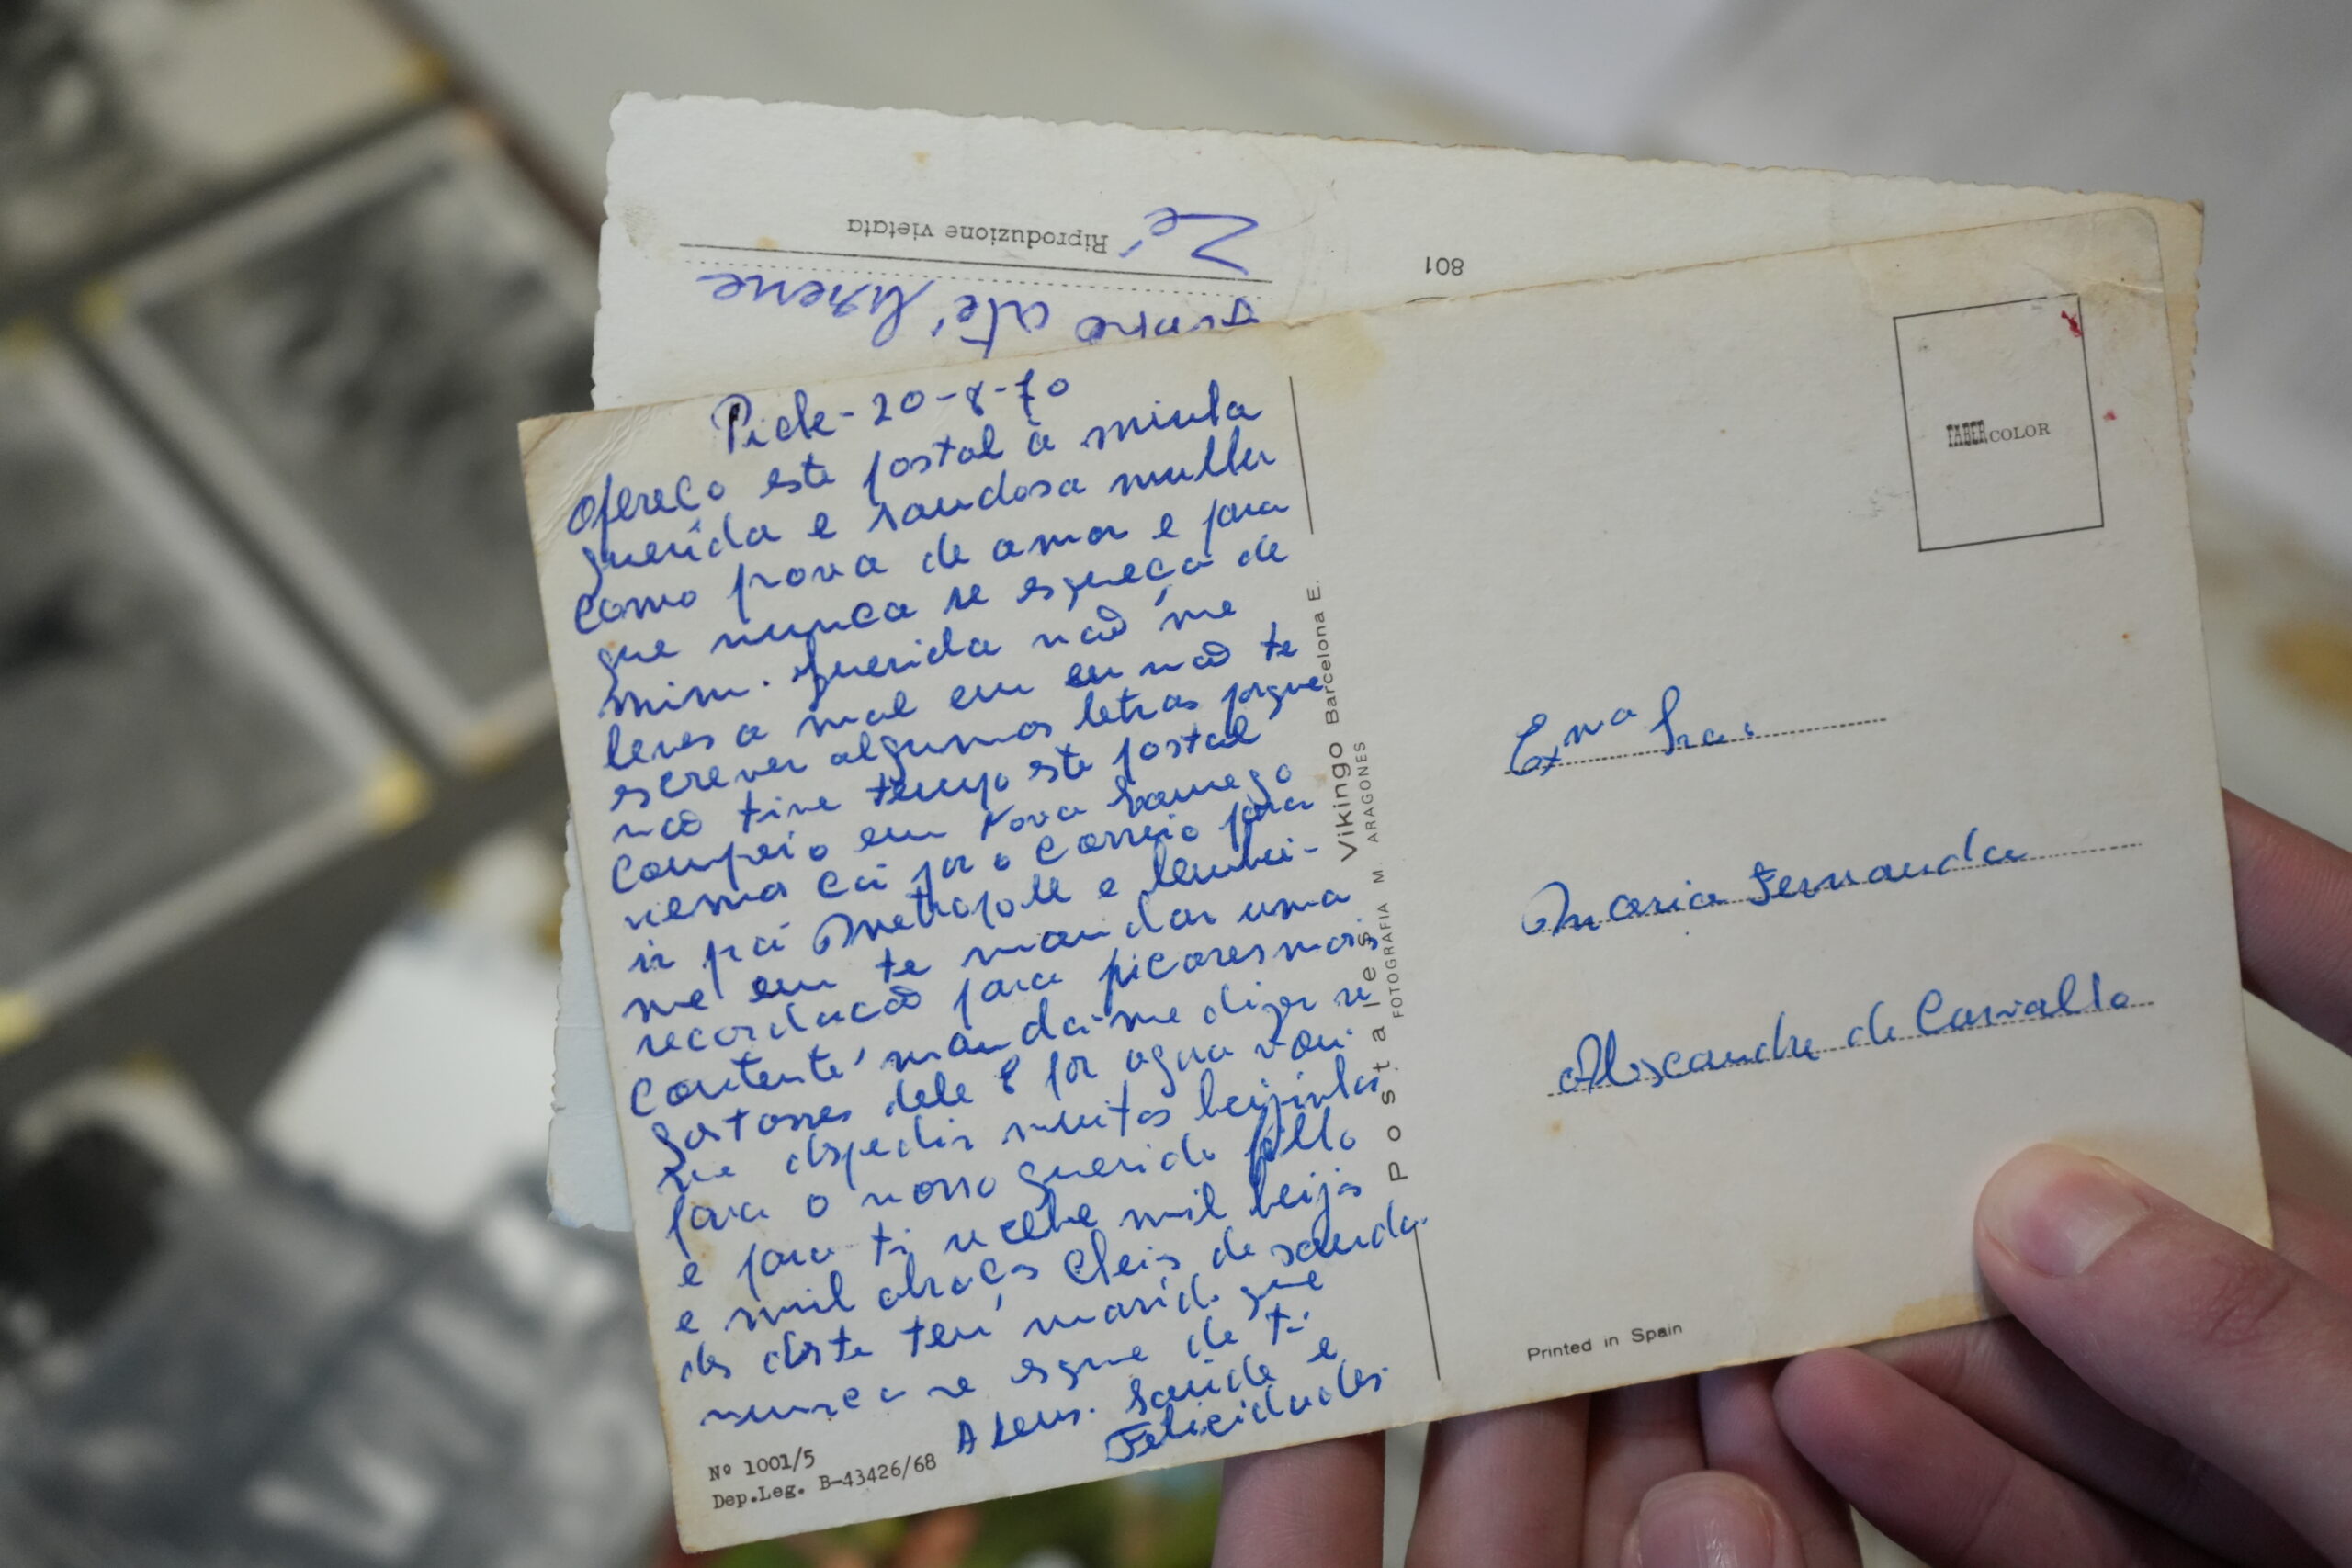 Riproduzione vietata
Zé
até
801
Piche-20-8-70
Ofereço este postal à minha
querida e saudosa mulher
como prova de amor e para
que nunca se esqueça de
mim. Querida não me
leves a mal em eu não te
escrever algumas letras porque
não tive tempo este postal
em Nova
cá por o correio para
ir pá Metropole e lembei-
me em te mandar uma
recordacão para ficares mais
contente manda-me dizer se
gostasses dele por agua vou-
me dspedir muitos beijinhos
para o nosso querido filho
e para ti recebe mil beijos
e mil abraços cheis de sauda-
des deste teu marido que
nunca se esque de ti
Adeus. Saude e
Felicidades.
Nº 1001/5
Dep.Leg. B-43426/68
Postales Vikingo Barcelona E.
FOTOGRAFIA M. ARAGONES
FABERCOLOR
Exma Sra.
Maria Fernanda
Alexandre de Carvalho
Printed in Spain